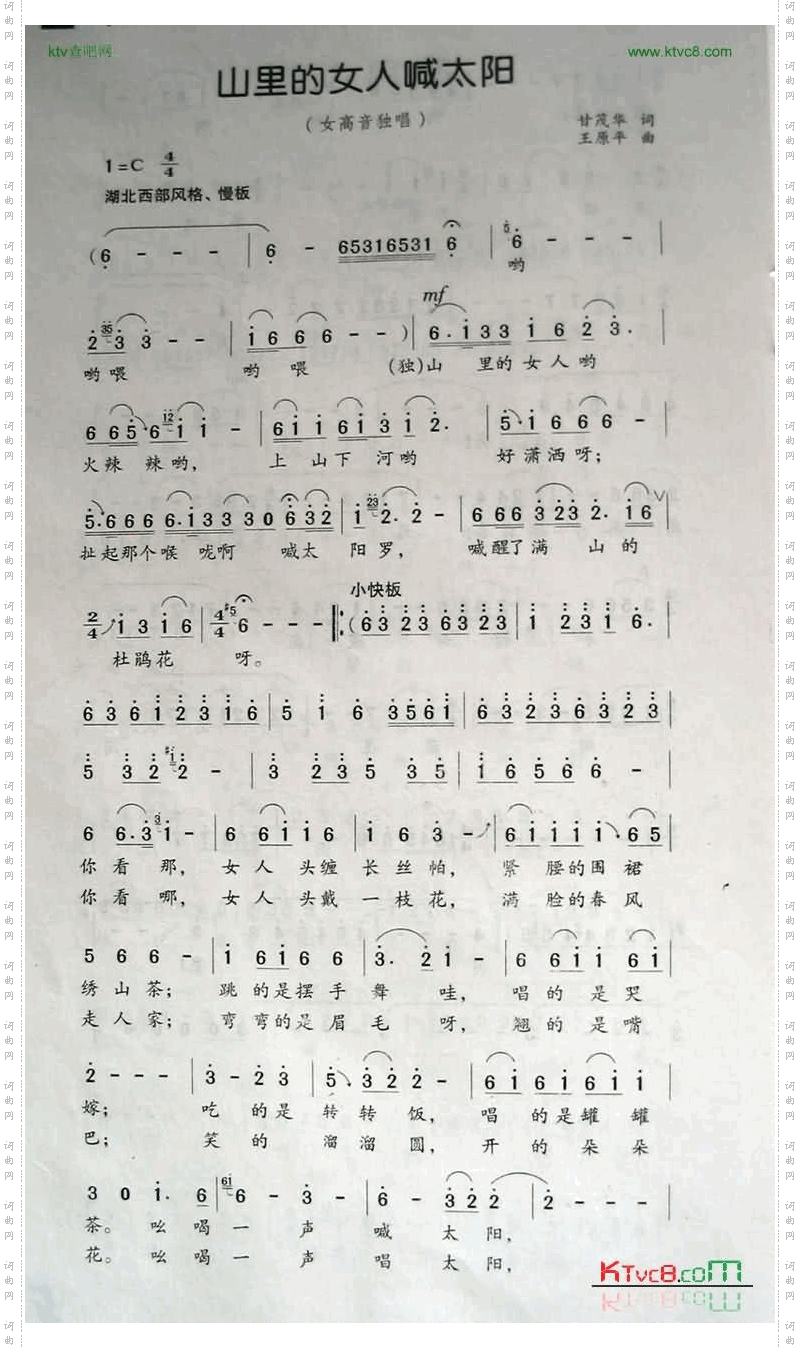 ktv查吧网
www.ktvc8.com
山里的女人喊太阳
(女高音独唱)
甘茂华 词
王原平 曲
1=C 4/4
湖北西部风格、慢板
(6 - - - | 6 - 65316531 6 | 6 - - - |
哟
mf
2 3 3 - - | 1 6 6 6 - - ) | 6. 1 3 3 1 6 2 3. |
哟喂 哟 喂 (独)山 里的女人哟
6 6 5 6 1 1 - | 6 1 1 6 1 3 1 2. | 5 1 6 6 6 - |
火辣 辣哟, 上 山下 河哟 好潇洒呀;
5. 6 6 6 6. 1 3 3 3 0 6 3 2 | 1 2. 2 - | 6 6 6 3 2 3 2. 1 6 |
扯起那个喉 咙啊 喊太 阳罗, 喊醒了满 山的
小快板
2/4 1 3 1 6 | 4/4 6 - - - |: (6 3 2 3 6 3 2 3 | 1 2 3 1 6. |
杜鹃花 呀。
6 3 6 1 2 3 1 6 | 5 1 6 3 5 6 1 | 6 3 2 3 6 3 2 3 |
5 3 2 2 - | 3 2 3 5 3 5 | 1 6 5 6 6 - |
6 6. 3 1 - | 6 6 1 1 6 | 1 6 3 - | 6 1 1 1 1 6 5 |
你看那, 女人 头缠长丝帕, 紧 腰的围裙
你看哪, 女人 头戴一枝花, 满 脸的春风
5 6 6 - | 1 6 1 6 6 | 3. 2 1 - | 6 6 1 1 6 1 |
绣山茶; 跳的是摆手舞 哇, 唱的是哭
走人家; 弯弯的是眉毛 呀, 翘的是嘴
2 - - - | 3 - 2 3 | 5 3 2 2 - | 6 1 6 1 6 1 |
嫁; 吃 的是 转转饭, 唱 的是罐罐
巴; 笑 的 溜溜圆, 开 的 朵朵
3 0 1. 6 | 6 - 3 - | 6 - 3 2 2 | 2 - - - |
茶。吆喝一 声 喊 太阳,
花。吆喝一 声 唱 太阳,
KTvc8.com